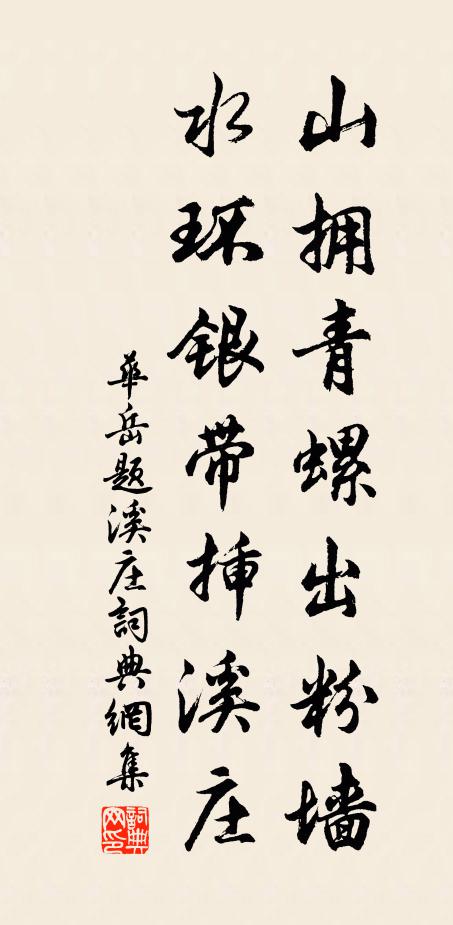 山拥青螺出粉墙
水环银带插溪庄
華岳题溪庄詞典網集
詞典
网印